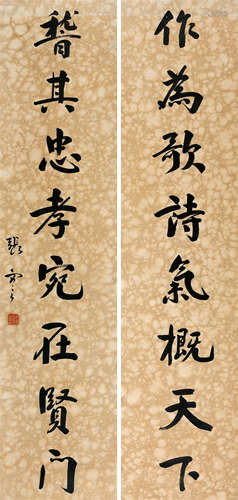 作為歌詩氣概天下
稽其忠孝宛在賢门